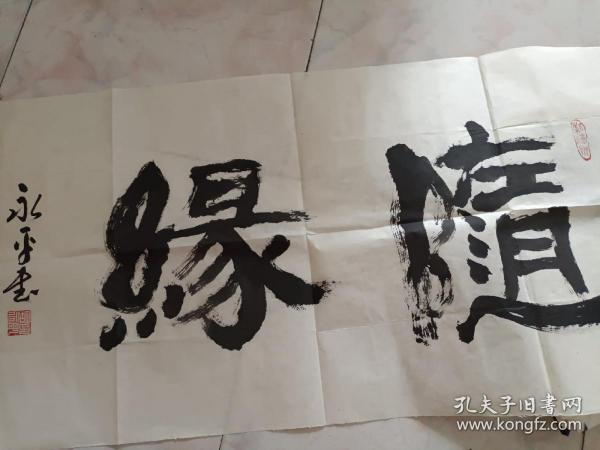 隨緣
永平书
孔夫子旧书网
www.kongfz.com